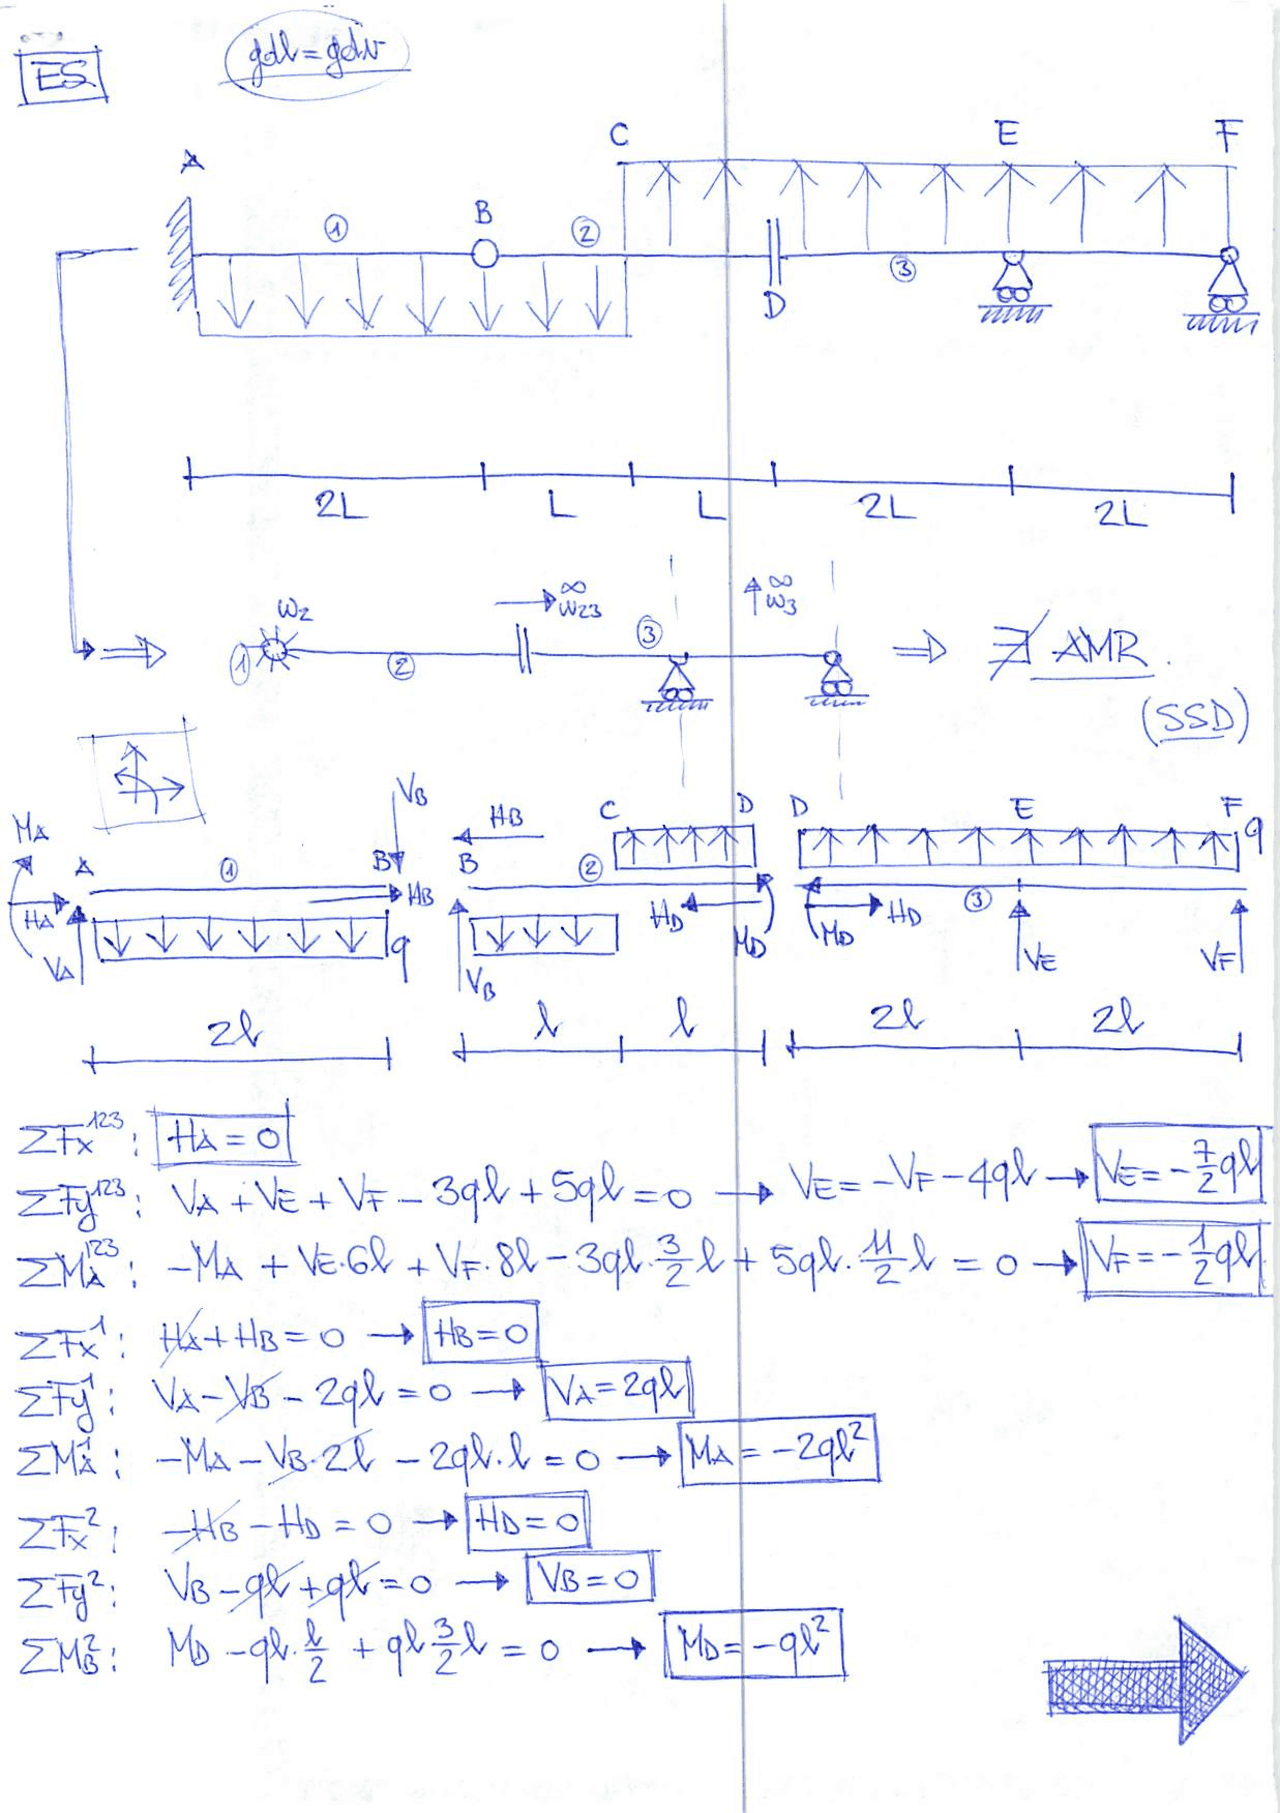 ES.
gdl = gdv
A
B
C
E
F
①
②
③
D
2L
L
L
2L
2L
① W2 ② →∞ W23 ③ ↑∞ W3 ⇒ ∄ AMR.
(SSD)
MA HA VA A ① B VB HB q
HB B ② C D HD MD VB
D E F q MD HD ③ VE VF
2l
l
l
2l
2l
ΣFx¹²³: HA = 0
ΣFy¹²³: VA + VE + VF - 3ql + 5ql = 0 → VE = -VF - 4ql → VE = -7/2 ql
ΣMA¹²³: -MA + VE·6l + VF·8l - 3ql·3/2 l + 5ql·11/2 l = 0 → VF = -1/2 ql
ΣFx¹: HA + HB = 0 → HB = 0
ΣFy¹: VA - VB - 2ql = 0 → VA = 2ql
ΣMA¹: -MA - VB·2l - 2ql·l = 0 → MA = -2ql²
ΣFx²: -HB - HD = 0 → HD = 0
ΣFy²: VB - ql + ql = 0 → VB = 0
ΣMB²: MD - ql·l/2 + ql 3/2 l = 0 → MD = -ql²